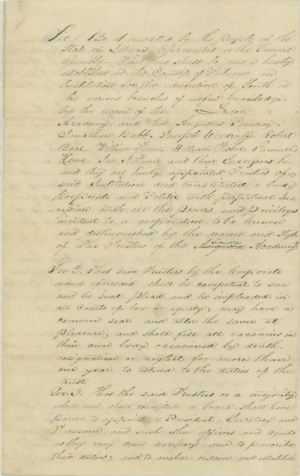 Sec 1 Be it enacted by the people of the
State of Illinois represented in the General
Assembly That there shall be and is hereby
established in the County of
Institution for the education of Youth in
the various branches of useful knowledge
by the name of the
Academy and that
Joseph Robert
William William
and their Successors be
and they are hereby appointed Trustees of
said Institution and constituted a body
Corporate and Politic with perpetual Suc-
cession with all the powers and privileges
incident to a corporation to be known
and distinguished by the name and Style
of The Trustees of the Academy
Sec 2. The said Trustees by the Corporate
name aforesaid shall be competent to sue
and be sued plead and be impleaded in
all Courts of law or equity; may have a
common seal and alter the same at
pleasure; and shall fill all vacancies in
their own body occasioned by death,
resignation or neglect for more than
one year to attend to the duties of the
trust
Sec 3. That the said Trustees or a majority
shall constitute a board shall have
power to appoint a President, Secretary and
Treasurer and such other officers and agents
as they may deem necessary and to prescribe
their duties; and to make, ordain and establish